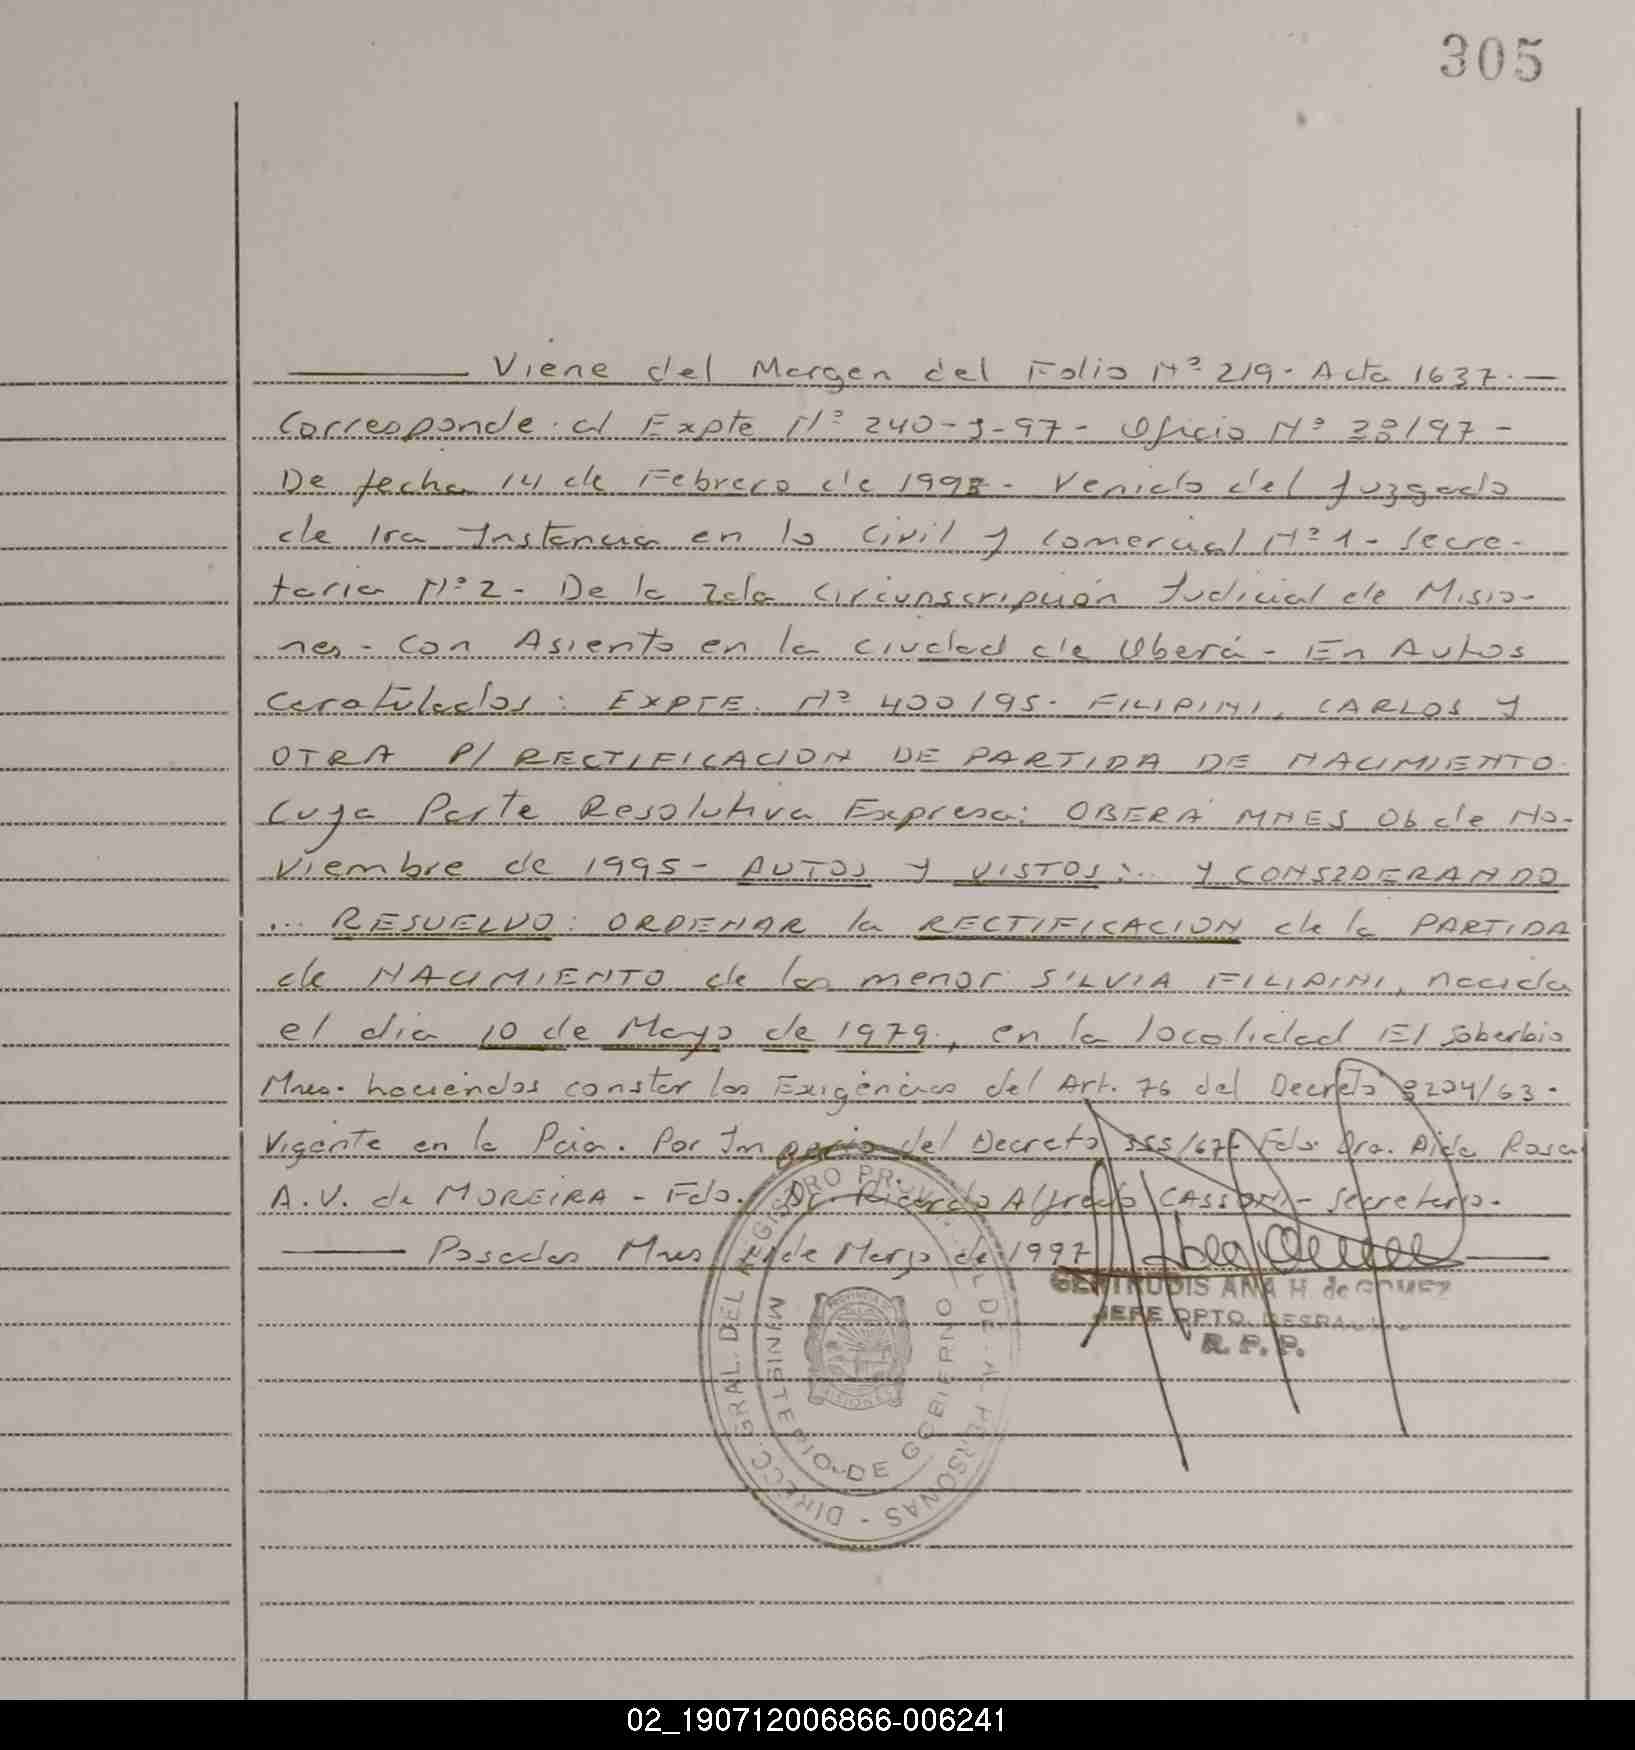 305
Viene del Margen del Folio Nº 219 - Acta 1637.-
Corresponde al Expte Nº 240-J-97 - Oficio Nº 38/97 -
De fecha 14 de Febrero de 1997 - Venido del Juzgado
de 1ra Instancia en lo Civil y Comercial Nº 1 - Secre-
taria Nº 2 - De la 2da Circunscripción Judicial de Misio-
nes - Con Asiento en la Ciudad de Oberá - En Autos
Caratulados: EXPTE. Nº 400/95 - FILIPINI, CARLOS Y
OTRA P/ RECTIFICACION DE PARTIDA DE NACIMIENTO.
Cuya Parte Resolutiva Expresa: OBERÁ MNES 06 de No-
viembre de 1995 - AUTOS Y VISTOS:.. Y CONSIDERANDO
... RESUELVO: ORDENAR la RECTIFICACION de la PARTIDA
de NACIMIENTO de la menor SILVIA FILIPINI, nacida
el día 10 de Mayo de 1979, en la localidad El Soberbio
Mnes. haciendos constar las Exigencias del Art. 76 del Decreto 8204/63.
Vigente en la Pcia. Por Imperio del Decreto 355/67 Fdo. Dra. Aida Rosa
A.V. de MOREIRA - Fdo. Dr. Ricardo Alfredo CASSONI - Secretario.
Posadas Mnes de Marzo de 1997
GERTRUDIS ANA H. de GOMEZ
JEFE DPTO. DESPACHO
R. P. P.
DIRECC. GRAL. DEL REGISTRO PROVINCIAL DE LAS PERSONAS -
MINISTERIO DE GOBIERNO
PROVINCIA DE
MISIONES
02_190712006866-006241